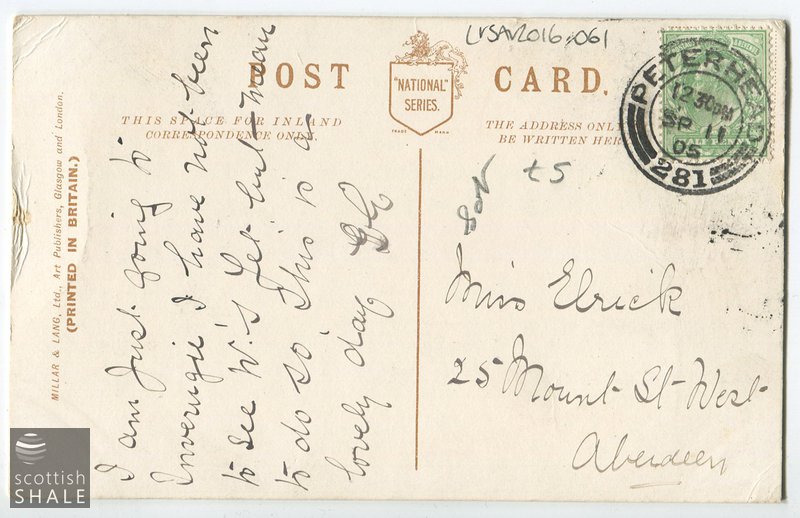 LVSAV2016.061
POST CARD.
"NATIONAL"
SERIES.
TRADE MARK
THIS SPACE FOR INLAND
CORRESPONDENCE ONLY.
THE ADDRESS ONL
BE WRITTEN HER
PETERHEAD
12 30PM
SP 11
05
281
£5
MILLAR & LANG, Ltd., Art Publishers, Glasgow and London.
(PRINTED IN BRITAIN.)
I am just going to
Inverugie I have not been
to see W.'s yet but mean
to do so This is a
lovely day
Miss Elrick
25 Mount St West
Aberdeen
scottish
SHALE